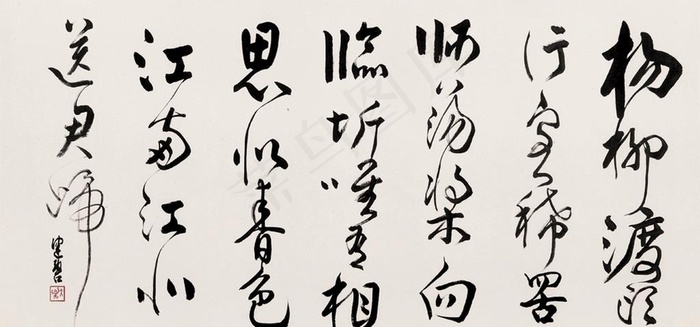 杨柳渡头
行客稀罟
师荡桨向
临圻唯有相
思似春色
江南江北
送君归